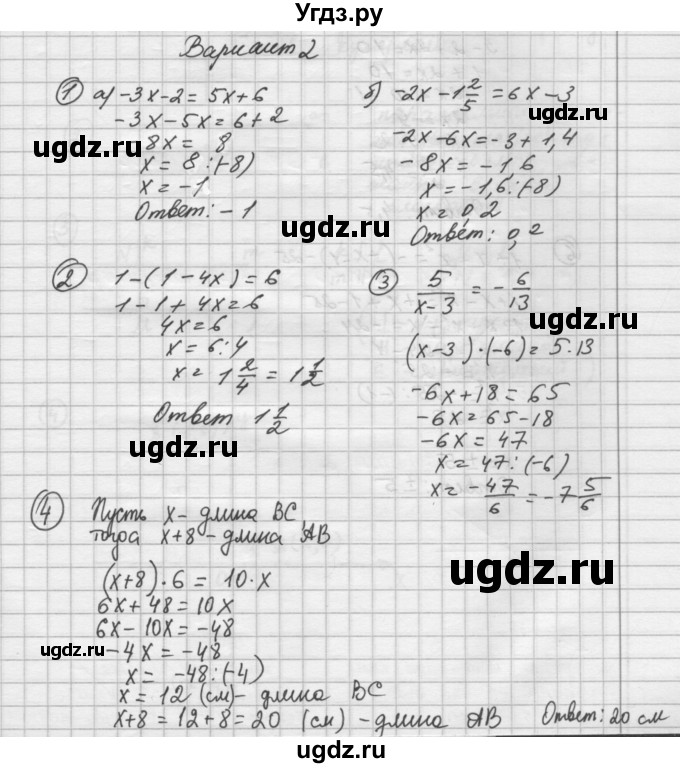 Угдз.ру
Вариант 2
1 а) -3x-2=5x+6
-3x-5x=6+2
-8x= 8
x= 8:(-8)
x= -1
Ответ: -1
б) -2x-1 2/5 =6x-3
-2x-6x=-3+1,4
-8x=-1,6
x=-1,6:(-8)
x=0,2
Ответ: 0,2
2 1-(1-4x)=6
1-1+4x=6
4x=6
x=6:4
x= 1 2/4 = 1 1/2
Ответ 1 1/2
3 5/(x-3) = - 6/13
(x-3)·(-6)=5·13
-6x+18=65
-6x=65-18
-6x=47
x=47:(-6)
x= -47/6 =-7 5/6
4 Пусть x- длина BC,
тогда x+8- длина AB
(x+8)·6 = 10·x
6x+48=10x
6x-10x=-48
-4x=-48
x= -48:(-4)
x=12 (см)- длина BC
x+8=12+8=20 (см) -длина AB Ответ: 20 см
ugdz.ru
ugdz.ru
ugdz.ru
ugdz.ru
ugdz.ru
ugdz.ru
ugdz.ru
ugdz.ru
ugdz.ru